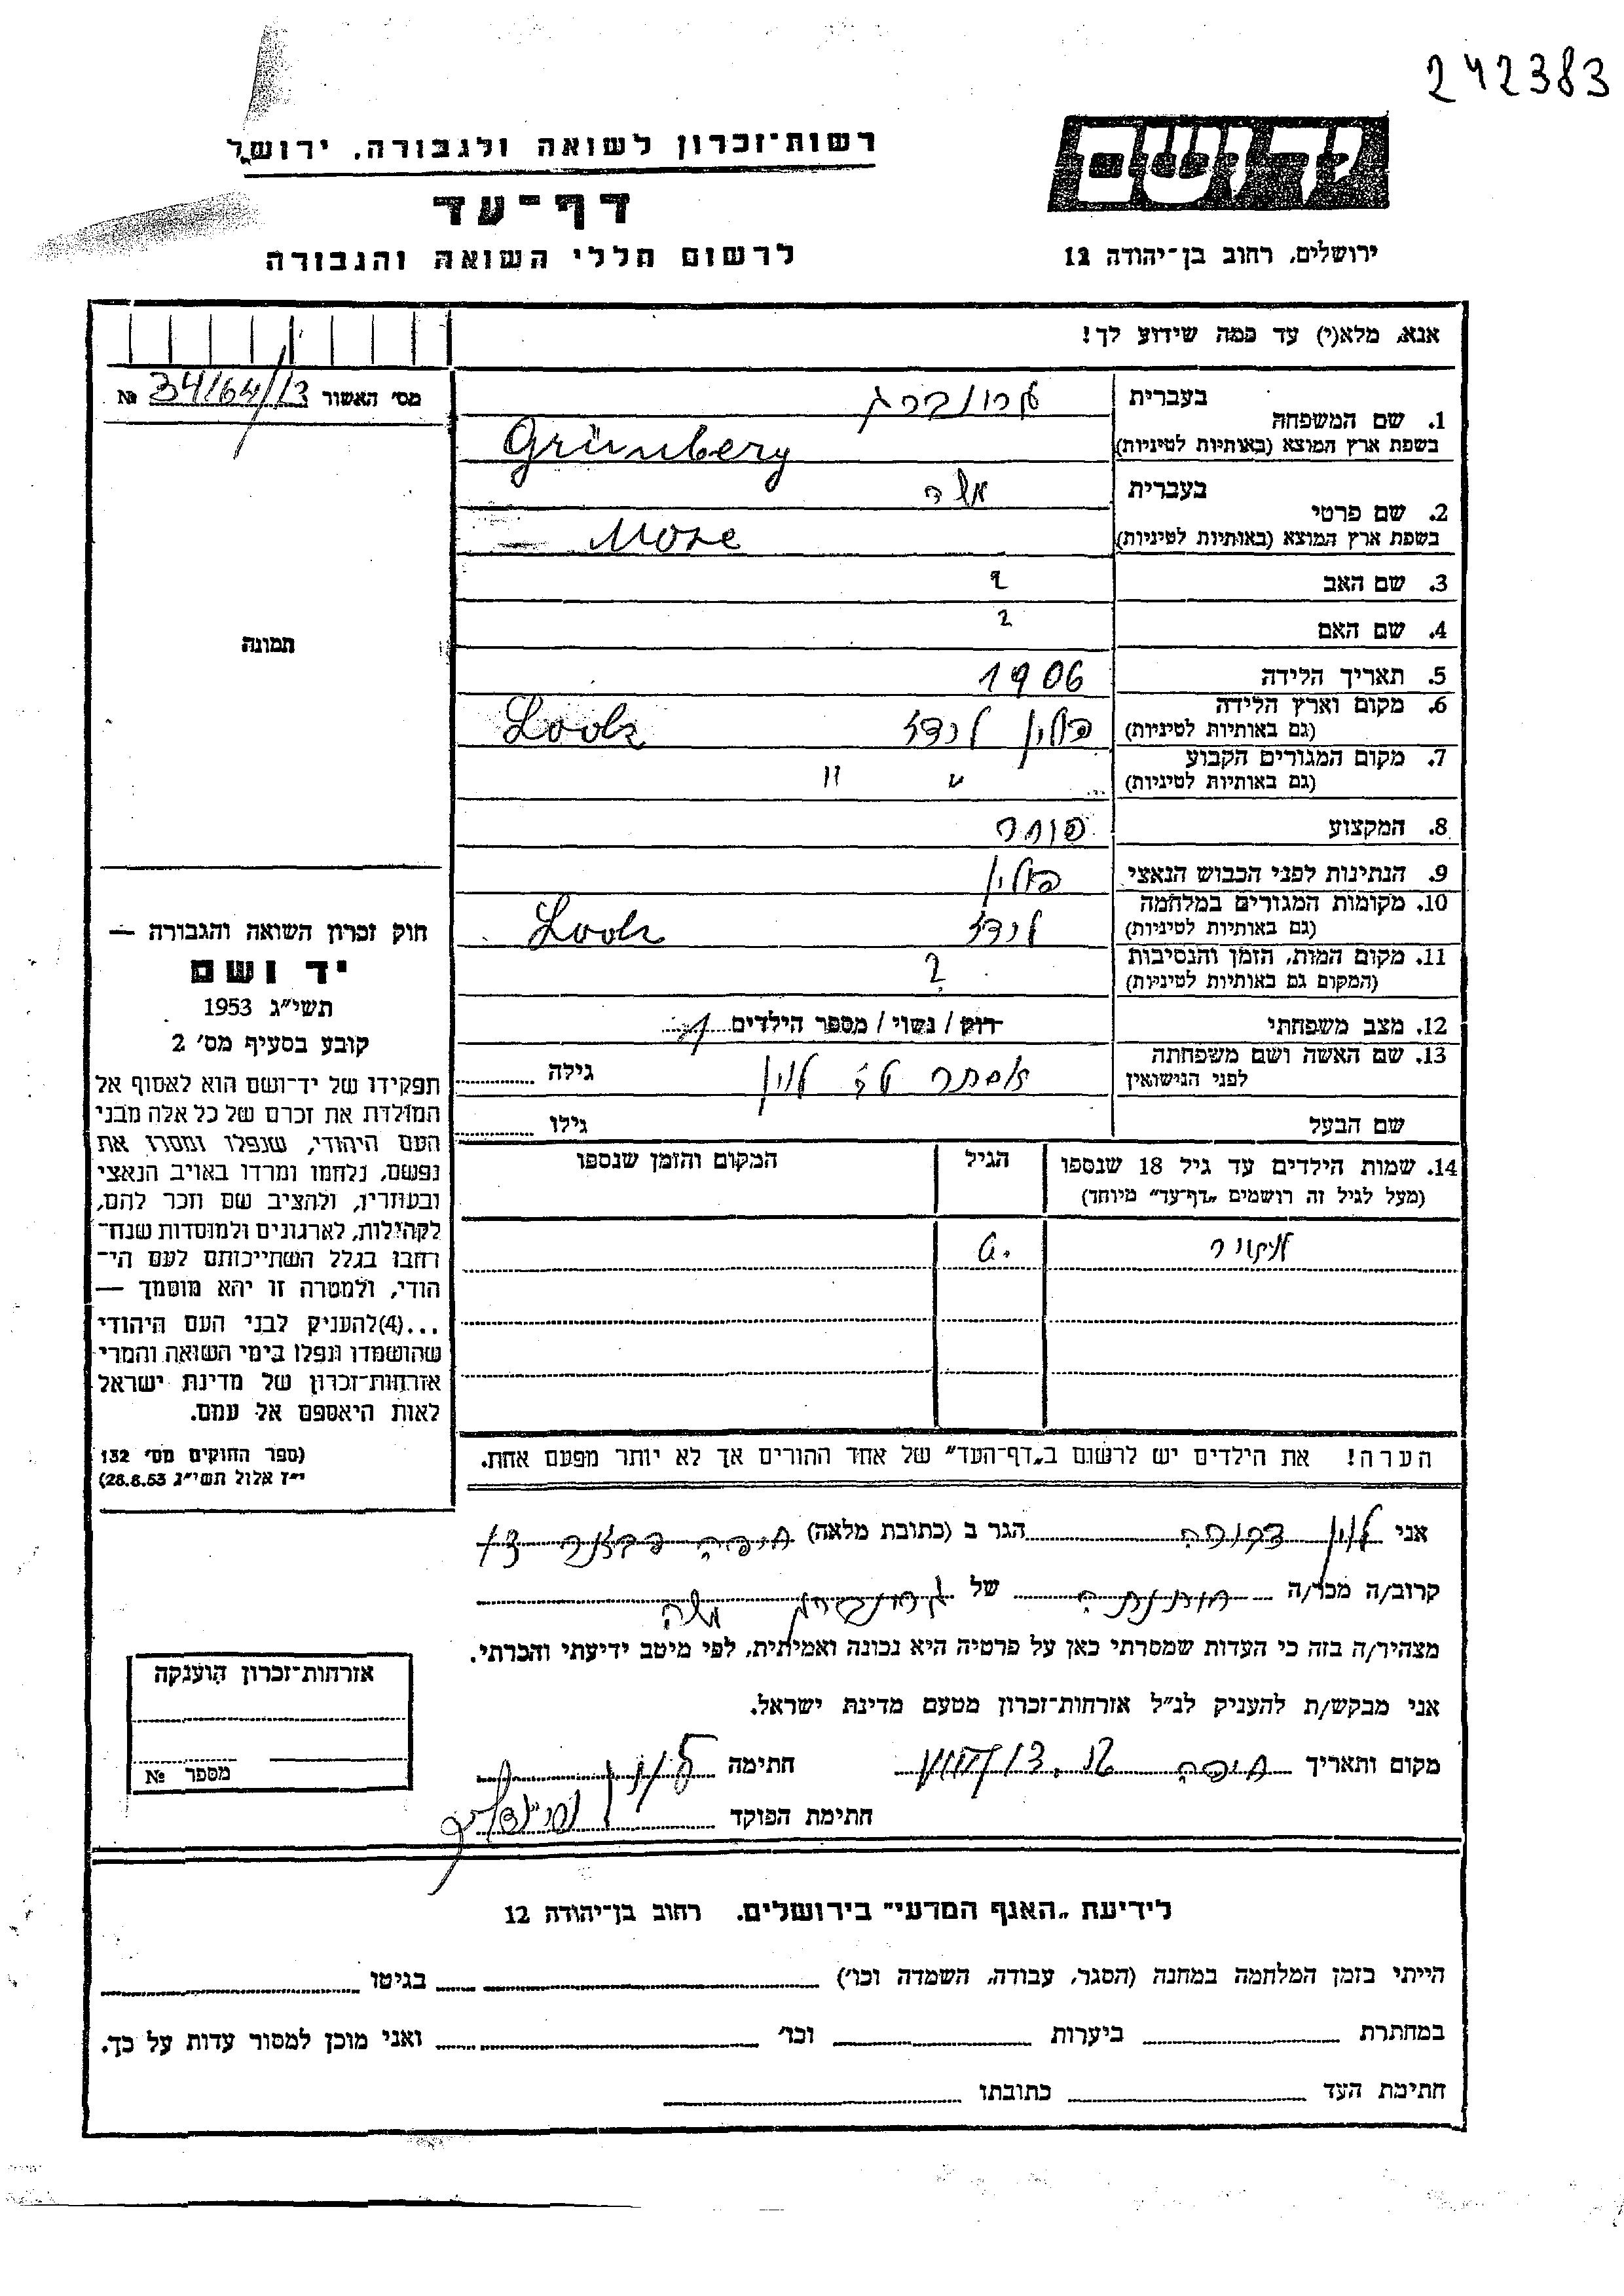 242383
יד ושם
רשות־זכרון לשואה ולגבורה, ירושל
דף־עד
לרשום חללי השואה והגבורה
ירושלים, רחוב בן־יהודה 12
אנא, מלא(י) עד כמה שידוע לך!
מס׳ האשור 34/64/13 №
בעברית גרונברג
1. שם המשפחה
בשפת ארץ המוצא (באותיות לטיניות) Grünberg
בעברית משה
2. שם פרטי
בשפת ארץ המוצא (באותיות לטיניות) Mosze
3. שם האב ?
4. שם האם ?
5. תאריך הלידה 1906
6. מקום וארץ הלידה פולין לודז Lodz
(גם באותיות לטיניות)
7. מקום המגורים הקבוע " "
(גם באותיות לטיניות)
8. המקצוע סוחר
9. הנתינות לפני הכבוש הנאצי פולין
10. מקומות המגורים במלחמה לודז Lodz
(גם באותיות לטיניות)
11. מקום המות, הזמן והנסיבות ?
(המקום גם באותיות לטיניות)
12. מצב משפחתי רוק / נשוי / מספר הילדים 1
13. שם האשה ושם משפחתה אסתר לוין גילה
לפני הנישואין
שם הבעל גילו
14. שמות הילדים עד גיל 18 שנספו הגיל המקום והזמן שנספו
(מעל לגיל זה רושמים „דף־עד״ מיוחד)
6.
הערה! את הילדים יש לרשום ב„דף־העד״ של אחד ההורים אך לא יותר מפעם אחת.
תמונה
חוק זכרון השואה והגבורה —
יד ושם
תשי״ג 1953
קובע בסעיף מס׳ 2
תפקידו של יד־ושם הוא לאסוף אל
המולדת את זכרם של כל אלה מבני
העם היהודי, שנפלו ומסרו את
נפשם, נלחמו ומרדו באויב הנאצי
ובעוזריו, ולהציב שם וזכר להם,
לקהילות, לארגונים ולמוסדות שנח־
רבו בגלל השתייכותם לעם הי־
הודי, ולמטרה זו יהא מוסמך —
...(4)להעניק לבני העם היהודי
שהושמדו ונפלו בימי השואה והמרי
אזרחות־זכרון של מדינת ישראל
לאות היאספם אל עמם.
(ספר החוקים מס׳ 132
י״ז אלול תשי״ג 28.8.53)
אני לוין הגר ב (כתובת מלאה) חיפה
קרוב/ה מכר/ה של גרונברג משה
מצהיר/ה בזה כי העדות שמסרתי כאן על פרטיה היא נכונה ואמיתית, לפי מיטב ידיעתי והכרתי.
אני מבקש/ת להעניק לנ״ל אזרחות־זכרון מטעם מדינת ישראל.
מקום ותאריך חיפה חתימה
חתימת הפוקד
אזרחות־זכרון הוענקה
מספר №
לידיעת „האגף המדעי״ בירושלים, רחוב בן־יהודה 12
הייתי בזמן המלחמה במחנה (הסגר, עבודה, השמדה וכו׳) בגיטו
במחתרת ביערות וכו׳ ואני מוכן למסור עדות על כך.
חתימת העד כתובתו